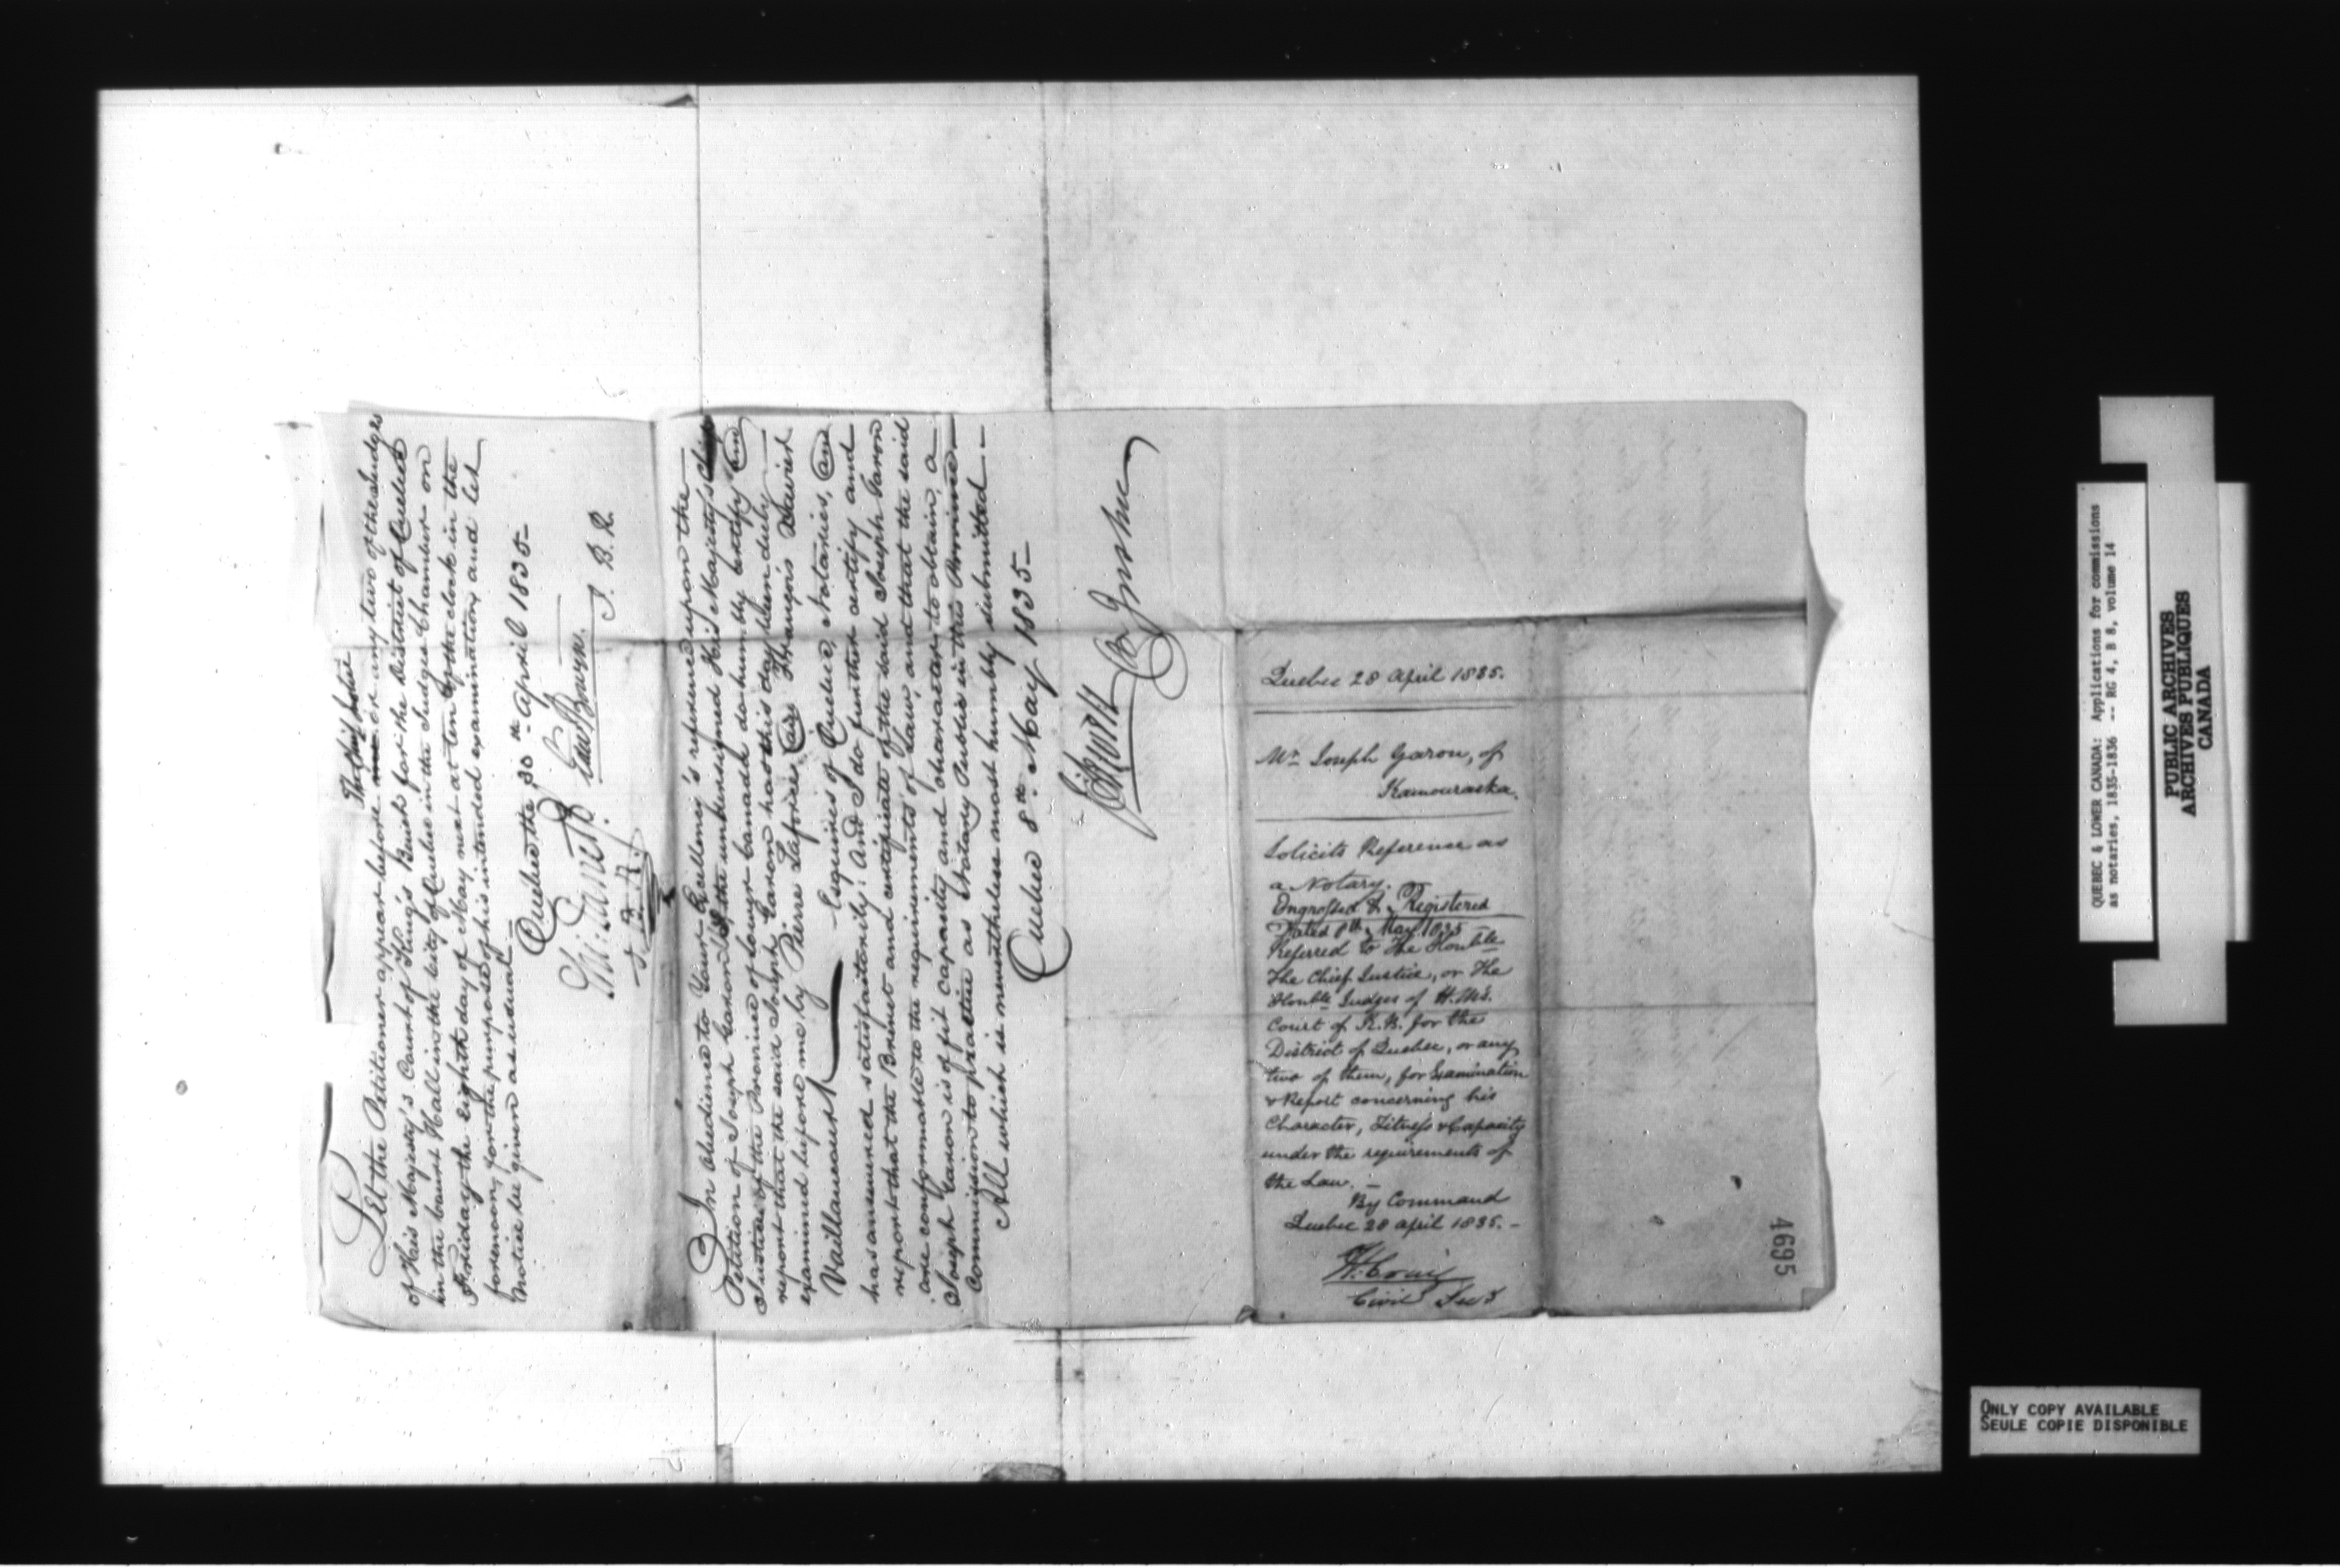 The Chief Justice
Let the Petitioner appear before or any two of the Judges
of His Majesty's Court of King's Bench for the District of Quebec
in the Court Hall in the City of Quebec in the Judges Chamber on
Friday the Eighth day of May next at ten of the clock in the
forenoon, for the purpose of his intended examination, and let
Notice be given as usual
Quebec the 30th April 1835
Edw Bowen.
J. B. R.
J. B. R.
In obedience to Your Excellency's reference upon the
Petition of Joseph Garon, I, the undersigned His Majesty's Chief
Justice of the Province of Lower Canada do humbly certify and
report that the said Joseph Garon has this day been duly
examined before me, by Pierre Laforce François Xavier
Vaillancourt Esquires of Quebec, Notaries, and
has answered satisfactorily: And I do further certify and
report that the Brevet and certificate of the said Joseph Garon
are conformable to the requirements of Law, and that the said
Joseph Garon is of fit capacity and character to obtain, a
Commission to practise as Notary Public in this Province
All which is nevertheless most humbly submitted -
Quebec 8th May 1835
Quebec 28 April 1835.
Mr Joseph Garon, of
Kamouraska.
Solicits Reference as
a Notary.
Engrossed & Registered
Dated 8th May 1835
Referred to the Honble
The Chief Justice, or The
Honble Judges of H. M's.
Court of K. B. for the
District of Quebec, or any
two of them, for Examination
& Report concerning his
Character, Fitness & Capacity
under the requirements of
the Law. -
By Command
Quebec 28 April 1835. -
H. Craig
Civil Secy
4695
QUEBEC & LOWER CANADA: Applications for commissions
as notaries, 1835-1836 -- RG 4, B 8, volume 14
PUBLIC ARCHIVES
ARCHIVES PUBLIQUES
CANADA
ONLY COPY AVAILABLE
SEULE COPIE DISPONIBLE